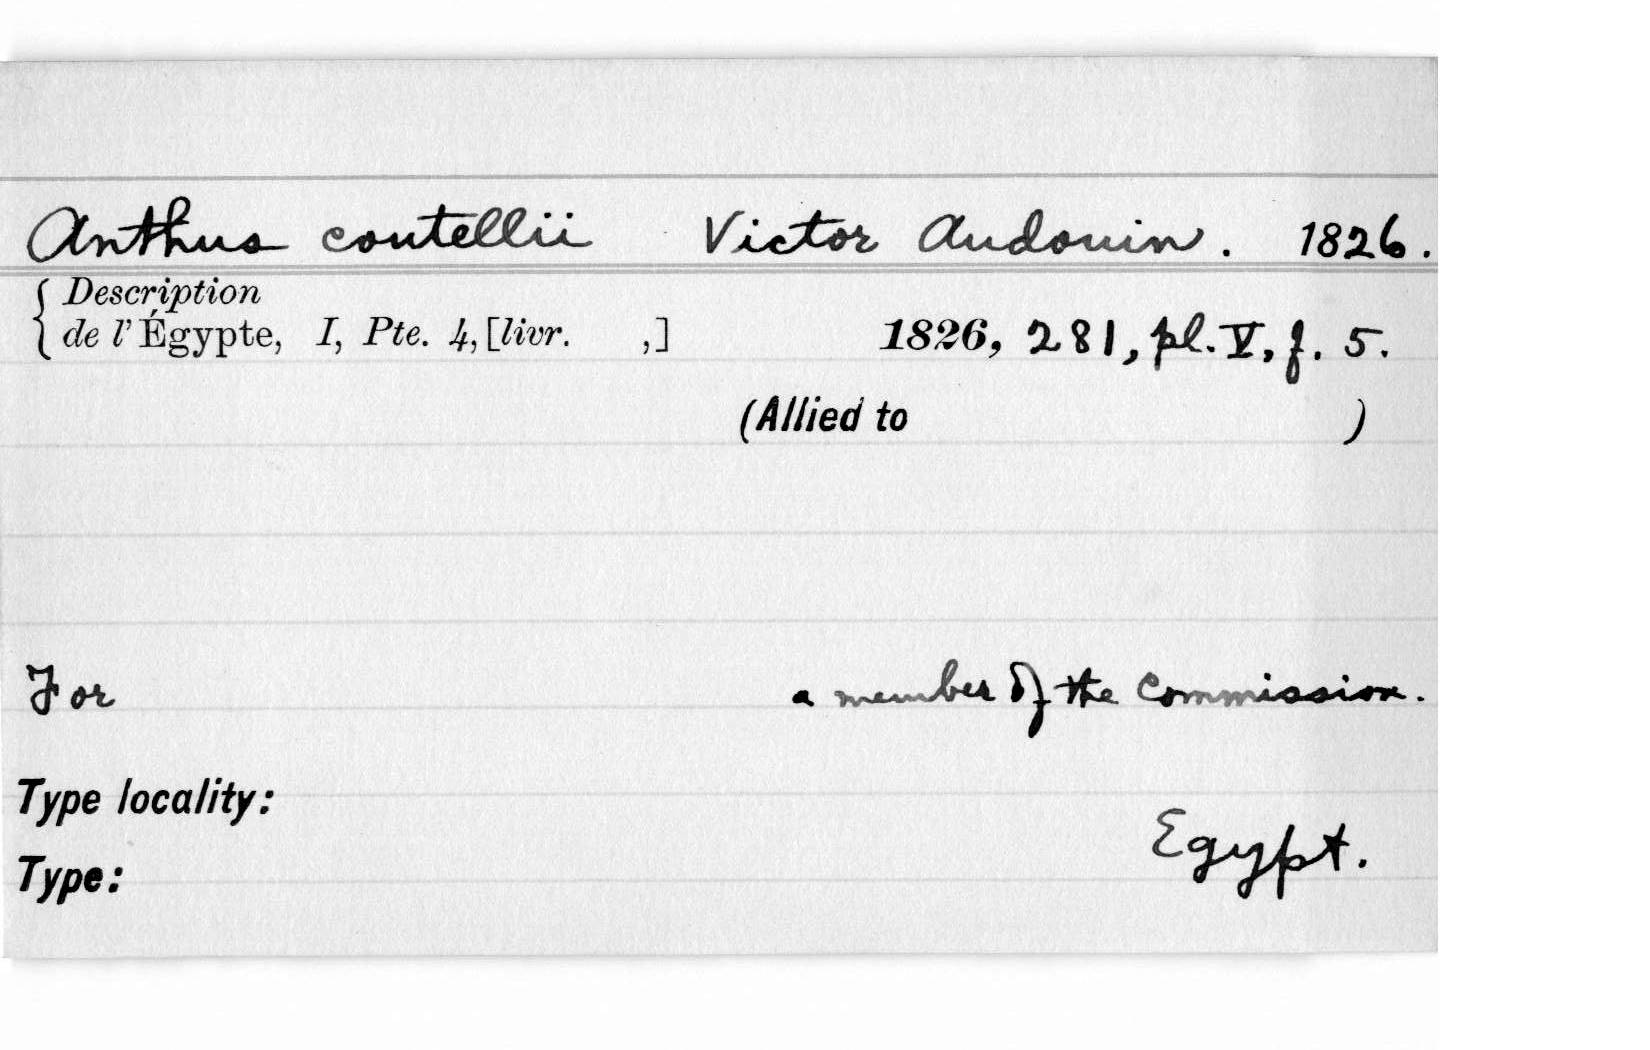 Anthus coutellii Victor Audouin. 1826.
Description
de l'Égypte, I, Pte. 4, [livr. ,] 1826, 281, pl. V, f. 5.
(Allied to )
For a member of the Commission.
Type locality:
Egypt.
Type: